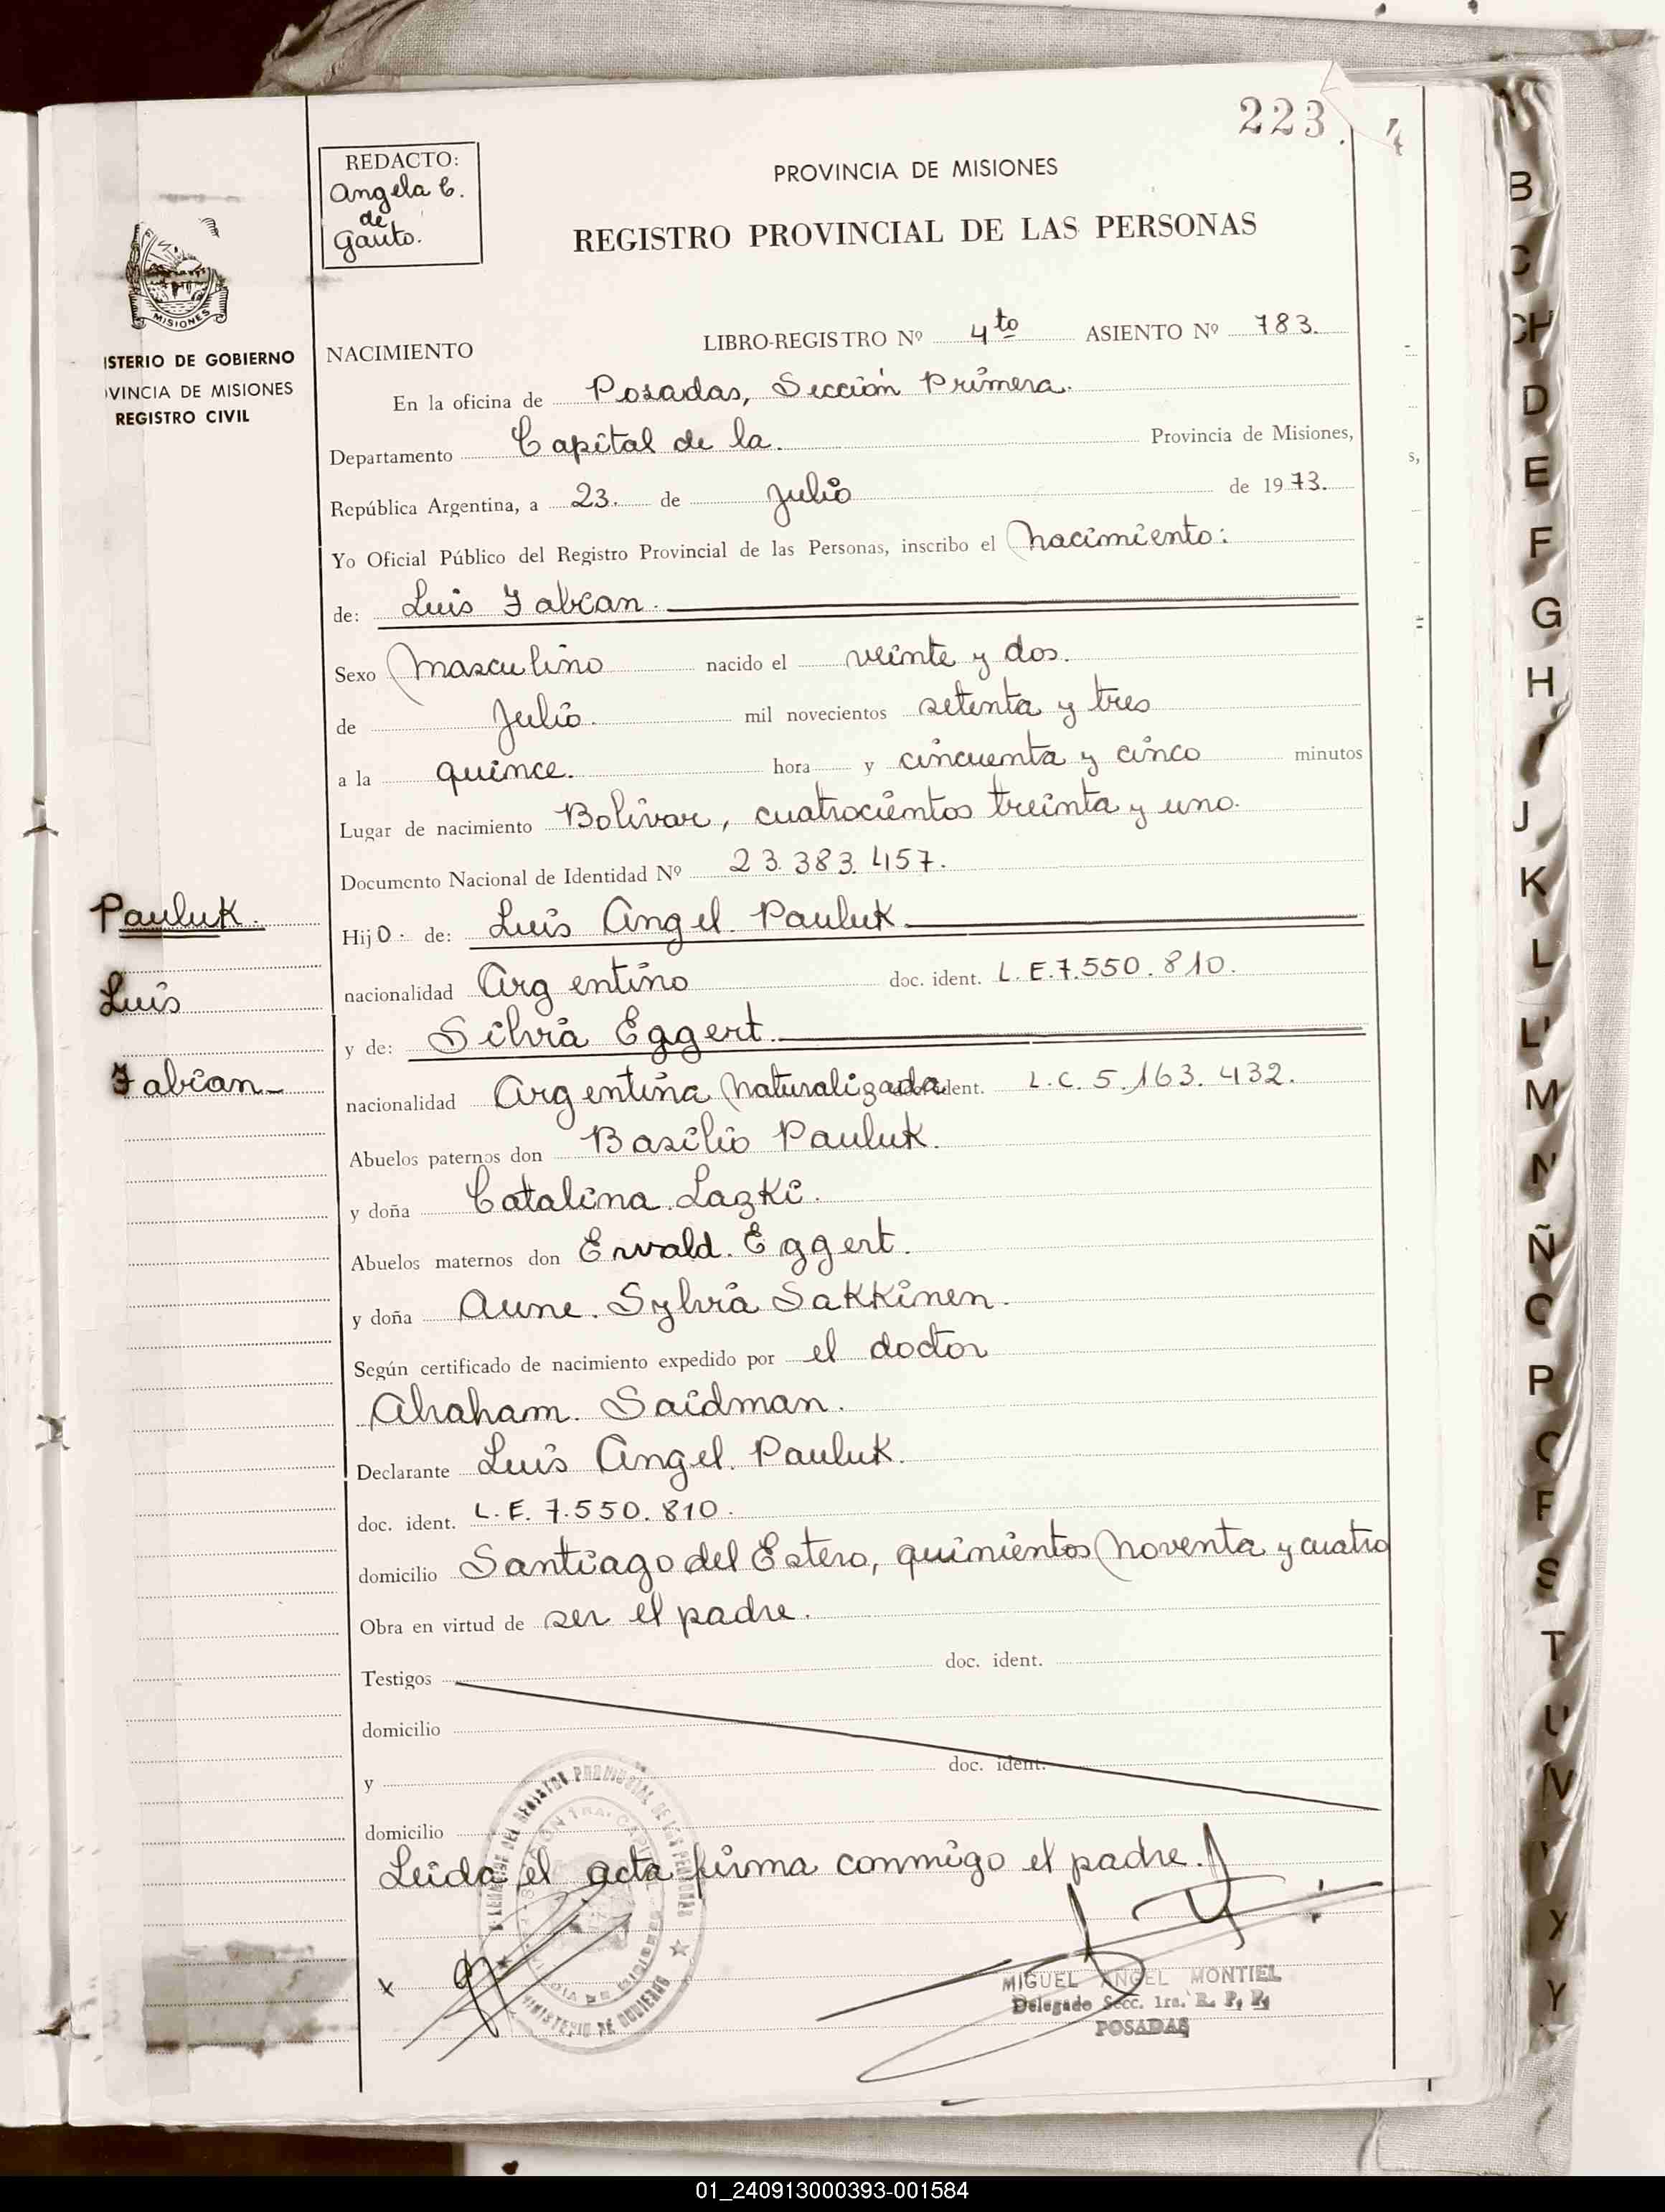 223.
4
REDACTO:
Angela C.
de
Gauto.
PROVINCIA DE MISIONES
REGISTRO PROVINCIAL DE LAS PERSONAS
MISIONES
ISTERIO DE GOBIERNO
OVINCIA DE MISIONES
REGISTRO CIVIL
NACIMIENTO LIBRO-REGISTRO Nº 4to ASIENTO Nº 783.
En la oficina de Posadas, Sección Primera.
Departamento Capital de la. Provincia de Misiones,
República Argentina, a 23. de Julio de 1973.
Yo Oficial Público del Registro Provincial de las Personas, inscribo el nacimiento:
de: Luis Fabian.
Sexo Masculino nacido el veinte y dos.
de Julio. mil novecientos setenta y tres
a la quince. hora y cincuenta y cinco minutos
Lugar de nacimiento Bolivar, cuatrocientos treinta y uno.
Documento Nacional de Identidad Nº 23.383.457.
Pauluk.
Luis
Fabian-
Hijo. de: Luis Angel Pauluk
nacionalidad Argentino doc. ident. L.E.7.550.810.
y de: Silvia Eggert.
nacionalidad Argentina Naturalizada doc. ident. L.C. 5.163.432.
Abuelos paternos don Basilio Pauluk.
y doña Catalina Lazki.
Abuelos maternos don Ervald. Eggert.
y doña Aune. Sylvia Sakkinen.
Según certificado de nacimiento expedido por el doctor
Abraham. Saidman.
Declarante Luis Angel. Pauluk.
doc. ident. L.E. 7.550.810.
domicilio Santiago del Estero, quinientos noventa y cuatro
Obra en virtud de ser el padre.
Testigos doc. ident.
domicilio
y doc. ident.
domicilio
Leida el acta firma conmigo el padre.
x
MIGUEL ANGEL MONTIEL
Delegado Secc. 1ra. R. P. P.
POSADAS
MINISTERIO DE GOBIERNO
B
C
CH
D
E
F
G
H
I
J
K
L
LL
M
N
Ñ
O
P
Q
R
S
T
U
V
X
Y
01_240913000393-001584